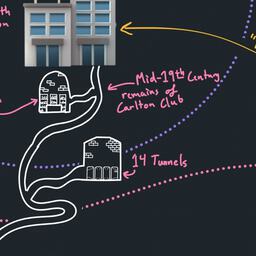 th
n
Mid-19th Century
remains of
Carlton Club
14 Tunnels